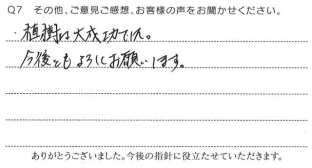 Q7 その他、ご意見ご感想、お客様の声をお聞かせください。
・植樹は大成功でした。
今後ともよろしくお願いします。
ありがとうございました。今後の指針に役立たせていただきます。